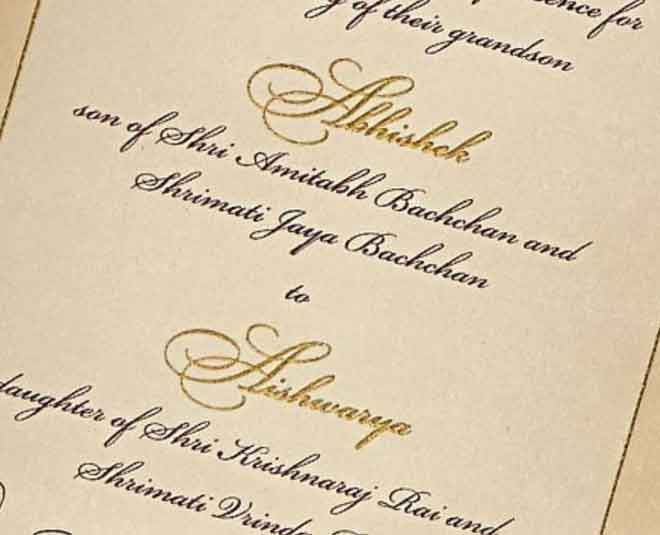 for
of their grandson
Abhishek
son of Shri Amitabh Bachchan and
Shrimati Jaya Bachchan
to
Aishwarya
daughter of Shri Krishnaraj Rai and
Shrimati